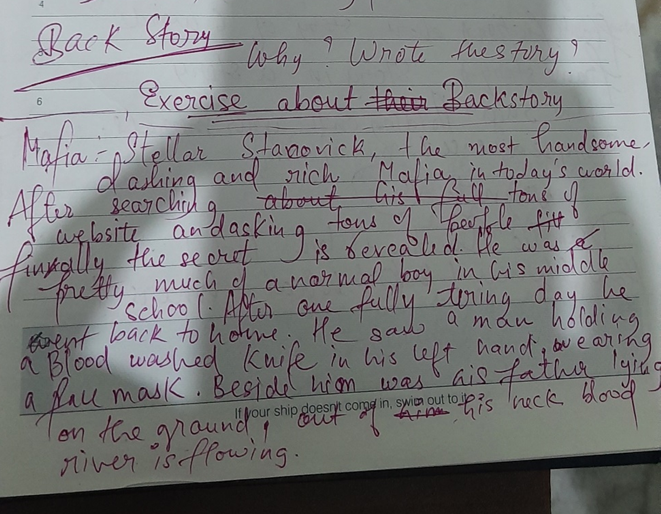 4
Back Story
Why? Wrote the story?
6
Exercise about their Backstory
Mafia :- Stellar Stanovick, the most handsome,
dashing and rich Mafia in today's world.
After searching about his full tons of
website and asking tons of people
finnally the secret is revealed. He was a
pretty much of a normal boy in his middle
school. After one fully tering day he
went back to home. He saw a man holding
a Blood washed knife in his left hand, wearing
a full mask. Beside him was his father lying
If your ship doesn't come in, swim out to
on the ground, out of him his neck blood
river is flowing.